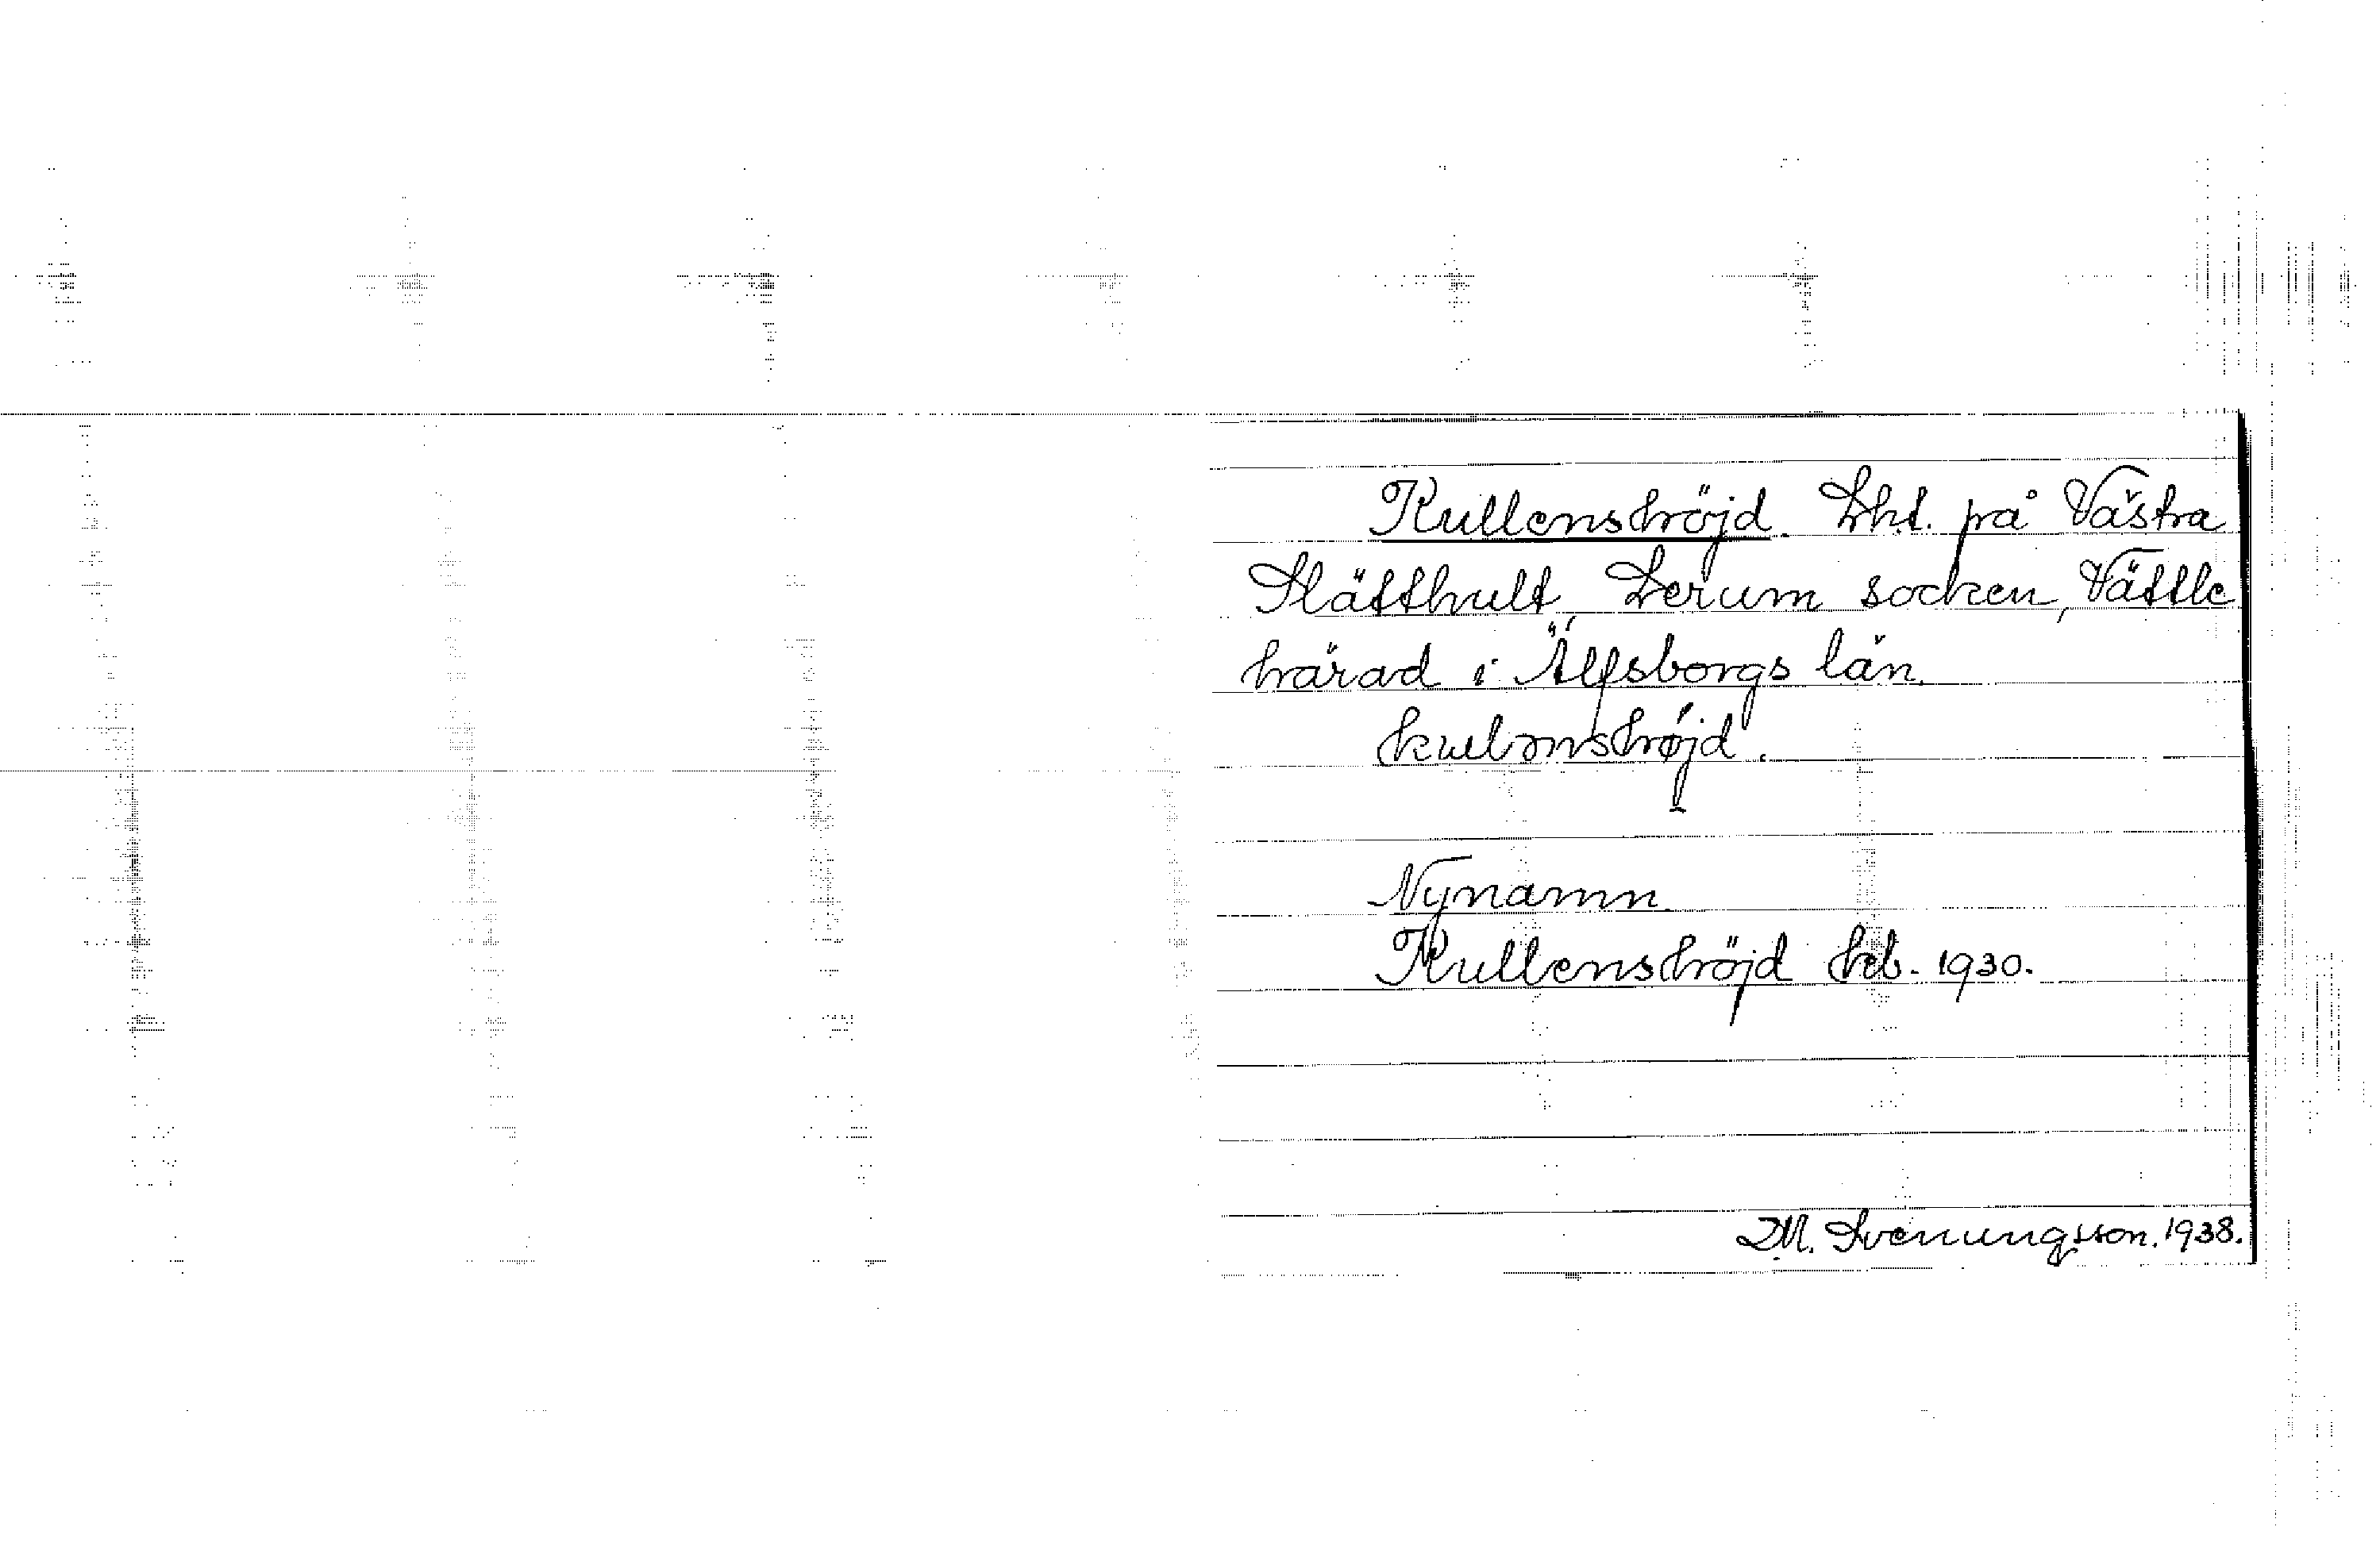 Kullenshöjd. Lht. på Västra
Slätthult Lerum socken, Vättle
härad i Älfsborgs län.
Nynamn
Kullenshöjd 1930.
D.M. Svenungsson. 1938.